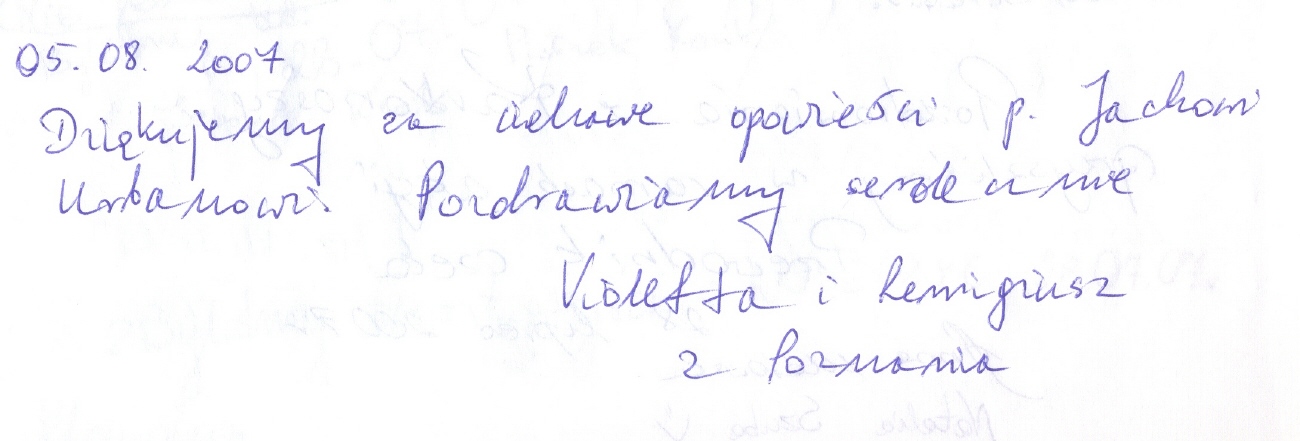 05. 08. 2007
Dziękujemy za ciekawe opowieści p. Jackowi
Urbanowi. Pozdrawiamy serdecznie
Violetta i Remigiusz
z Poznania